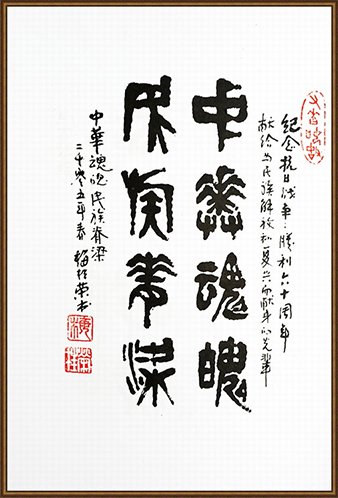 纪念抗日战争胜利六十周年
献给为民族解放和复兴而献身的先辈
中華魂魄
民族脊梁
中華魂魄民族脊梁
二千零五年春